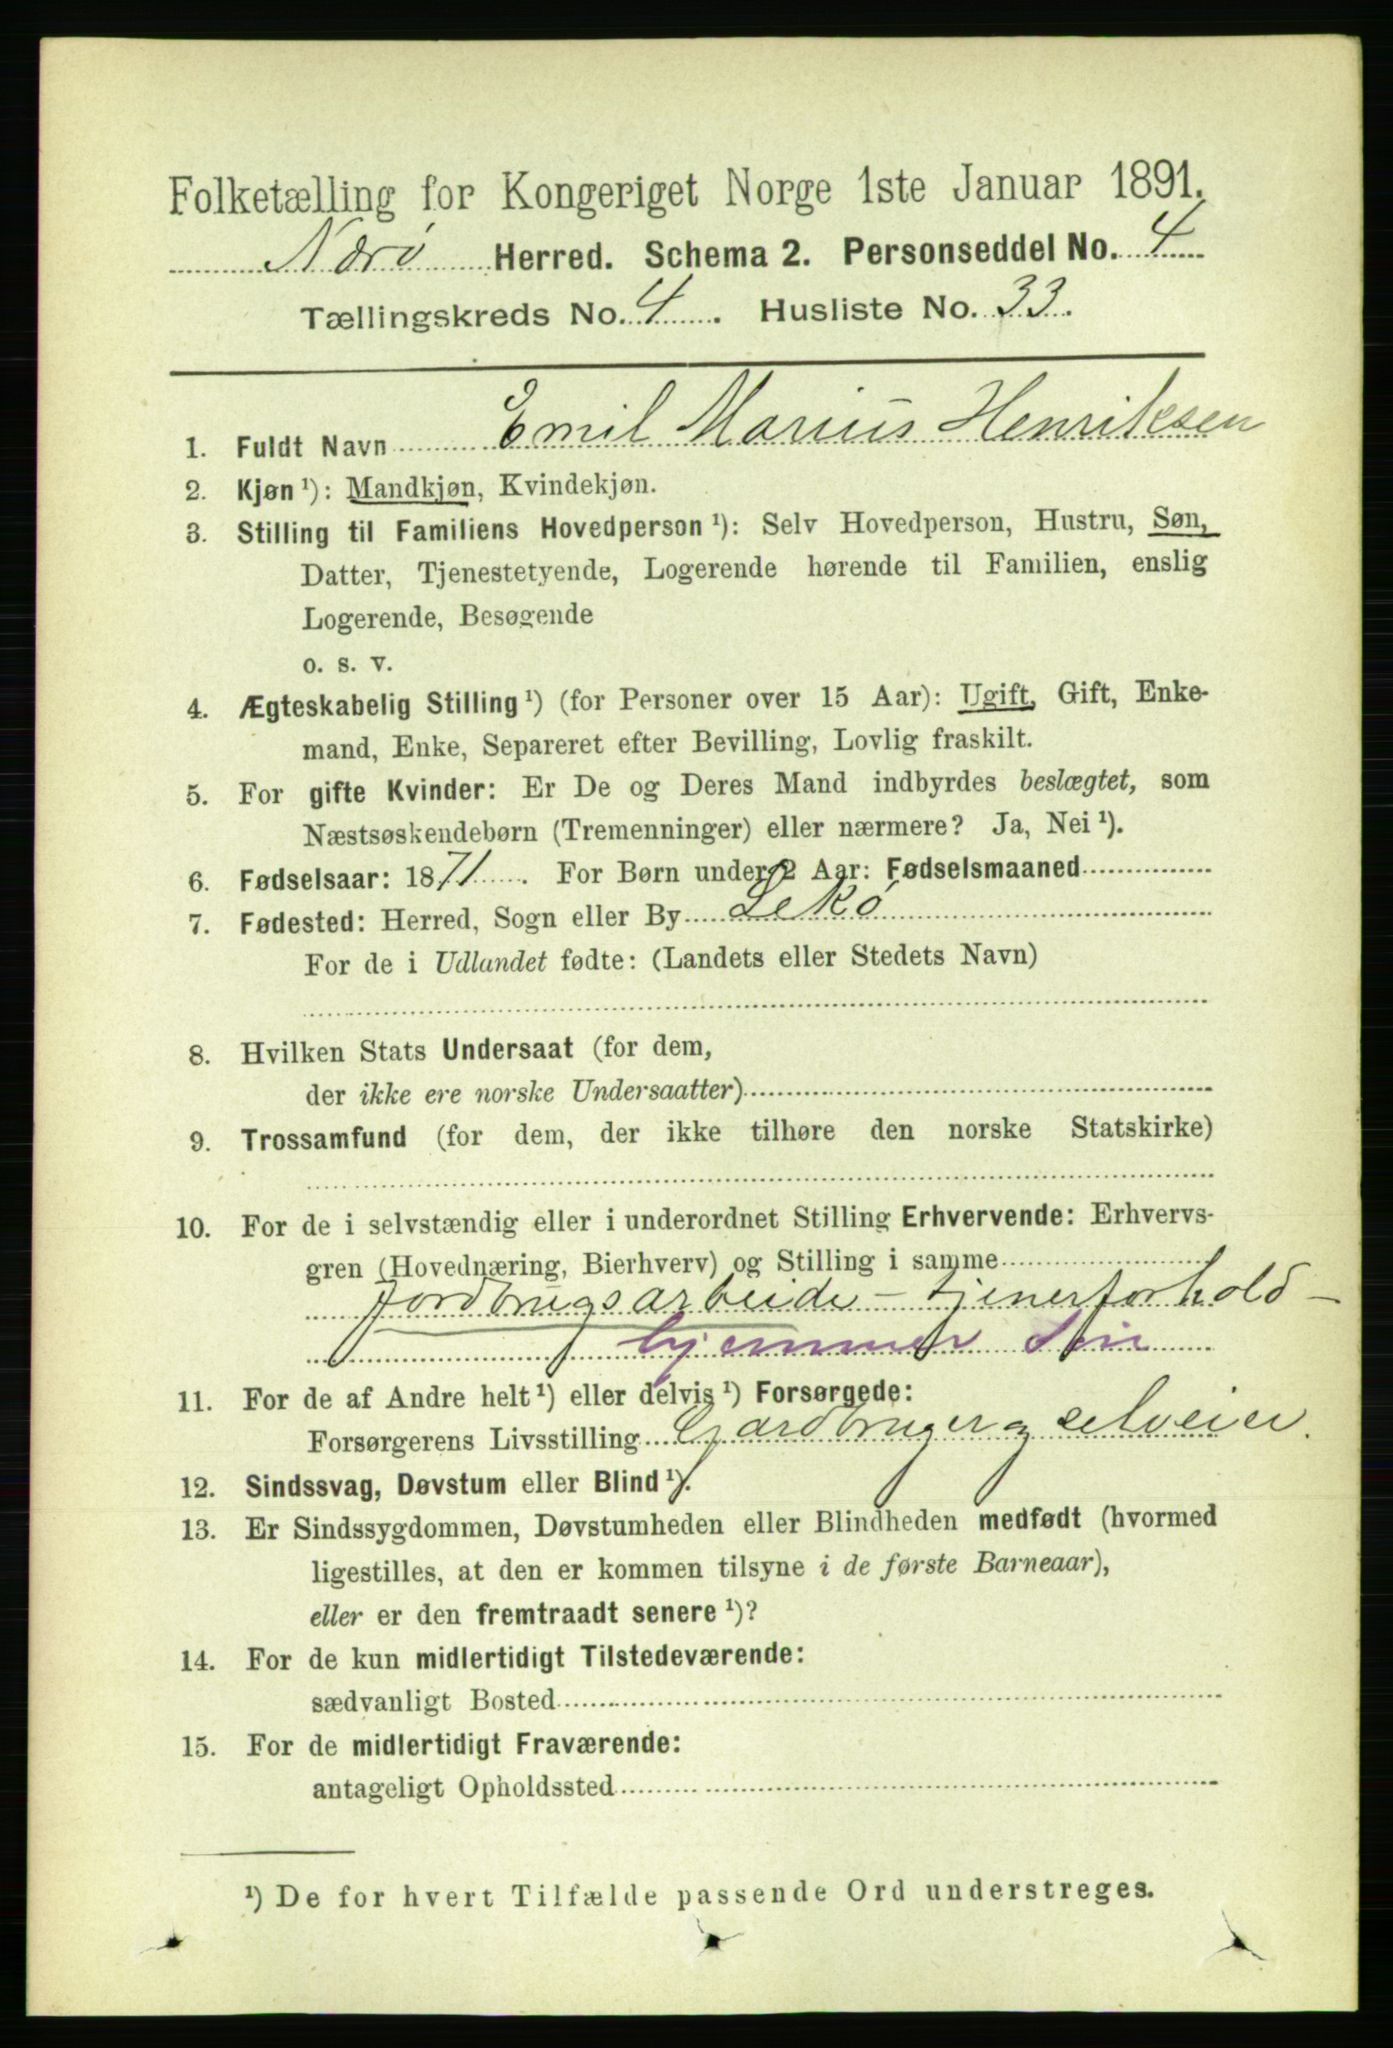 Folketælling for Kongeriget Norge 1ste Januar 1891.
Nærø Herred. Schema 2. Personseddel No. 4
Tællingskreds No. 4. Husliste No. 33.
1. Fuldt Navn Emil Marius Henriksen
2. Kjøn ¹): Mandkjøn, Kvindekjøn.
3. Stilling til Familiens Hovedperson ¹): Selv Hovedperson, Hustru, Søn,
Datter, Tjenestetyende, Logerende hørende til Familien, enslig
Logerende, Besøgende
o. s. v.
4. Ægteskabelig Stilling ¹) (for Personer over 15 Aar): Ugift, Gift, Enke-
mand, Enke, Separeret efter Bevilling, Lovlig fraskilt.
5. For gifte Kvinder: Er De og Deres Mand indbyrdes beslægtet, som
Næstsøskendebørn (Tremenninger) eller nærmere? Ja, Nei ¹).
6. Fødselsaar: 1871. For Børn under 2 Aar: Fødselsmaaned
7. Fødested: Herred, Sogn eller By Lekø
For de i Udlandet fødte: (Landets eller Stedets Navn)
8. Hvilken Stats Undersaat (for dem,
der ikke ere norske Undersaatter)
9. Trossamfund (for dem, der ikke tilhøre den norske Statskirke)
10. For de i selvstændig eller i underordnet Stilling Erhvervende: Erhvervs-
gren (Hovednæring, Bierhverv) og Stilling i samme
Jordbrugsarbeide - tjenerforhold -
hjemmev Søn
11. For de af Andre helt ¹) eller delvis ¹) Forsørgede:
Forsørgerens Livsstilling Gardbruger og selveier.
12. Sindssvag, Døvstum eller Blind ¹).
13. Er Sindssygdommen, Døvstumheden eller Blindheden medfødt (hvormed
ligestilles, at den er kommen tilsyne i de første Barneaar),
eller er den fremtraadt senere ¹)?
14. For de kun midlertidigt Tilstedeværende:
sædvanligt Bosted
15. For de midlertidigt Fraværende:
antageligt Opholdssted
¹) De for hvert Tilfælde passende Ord understreges.